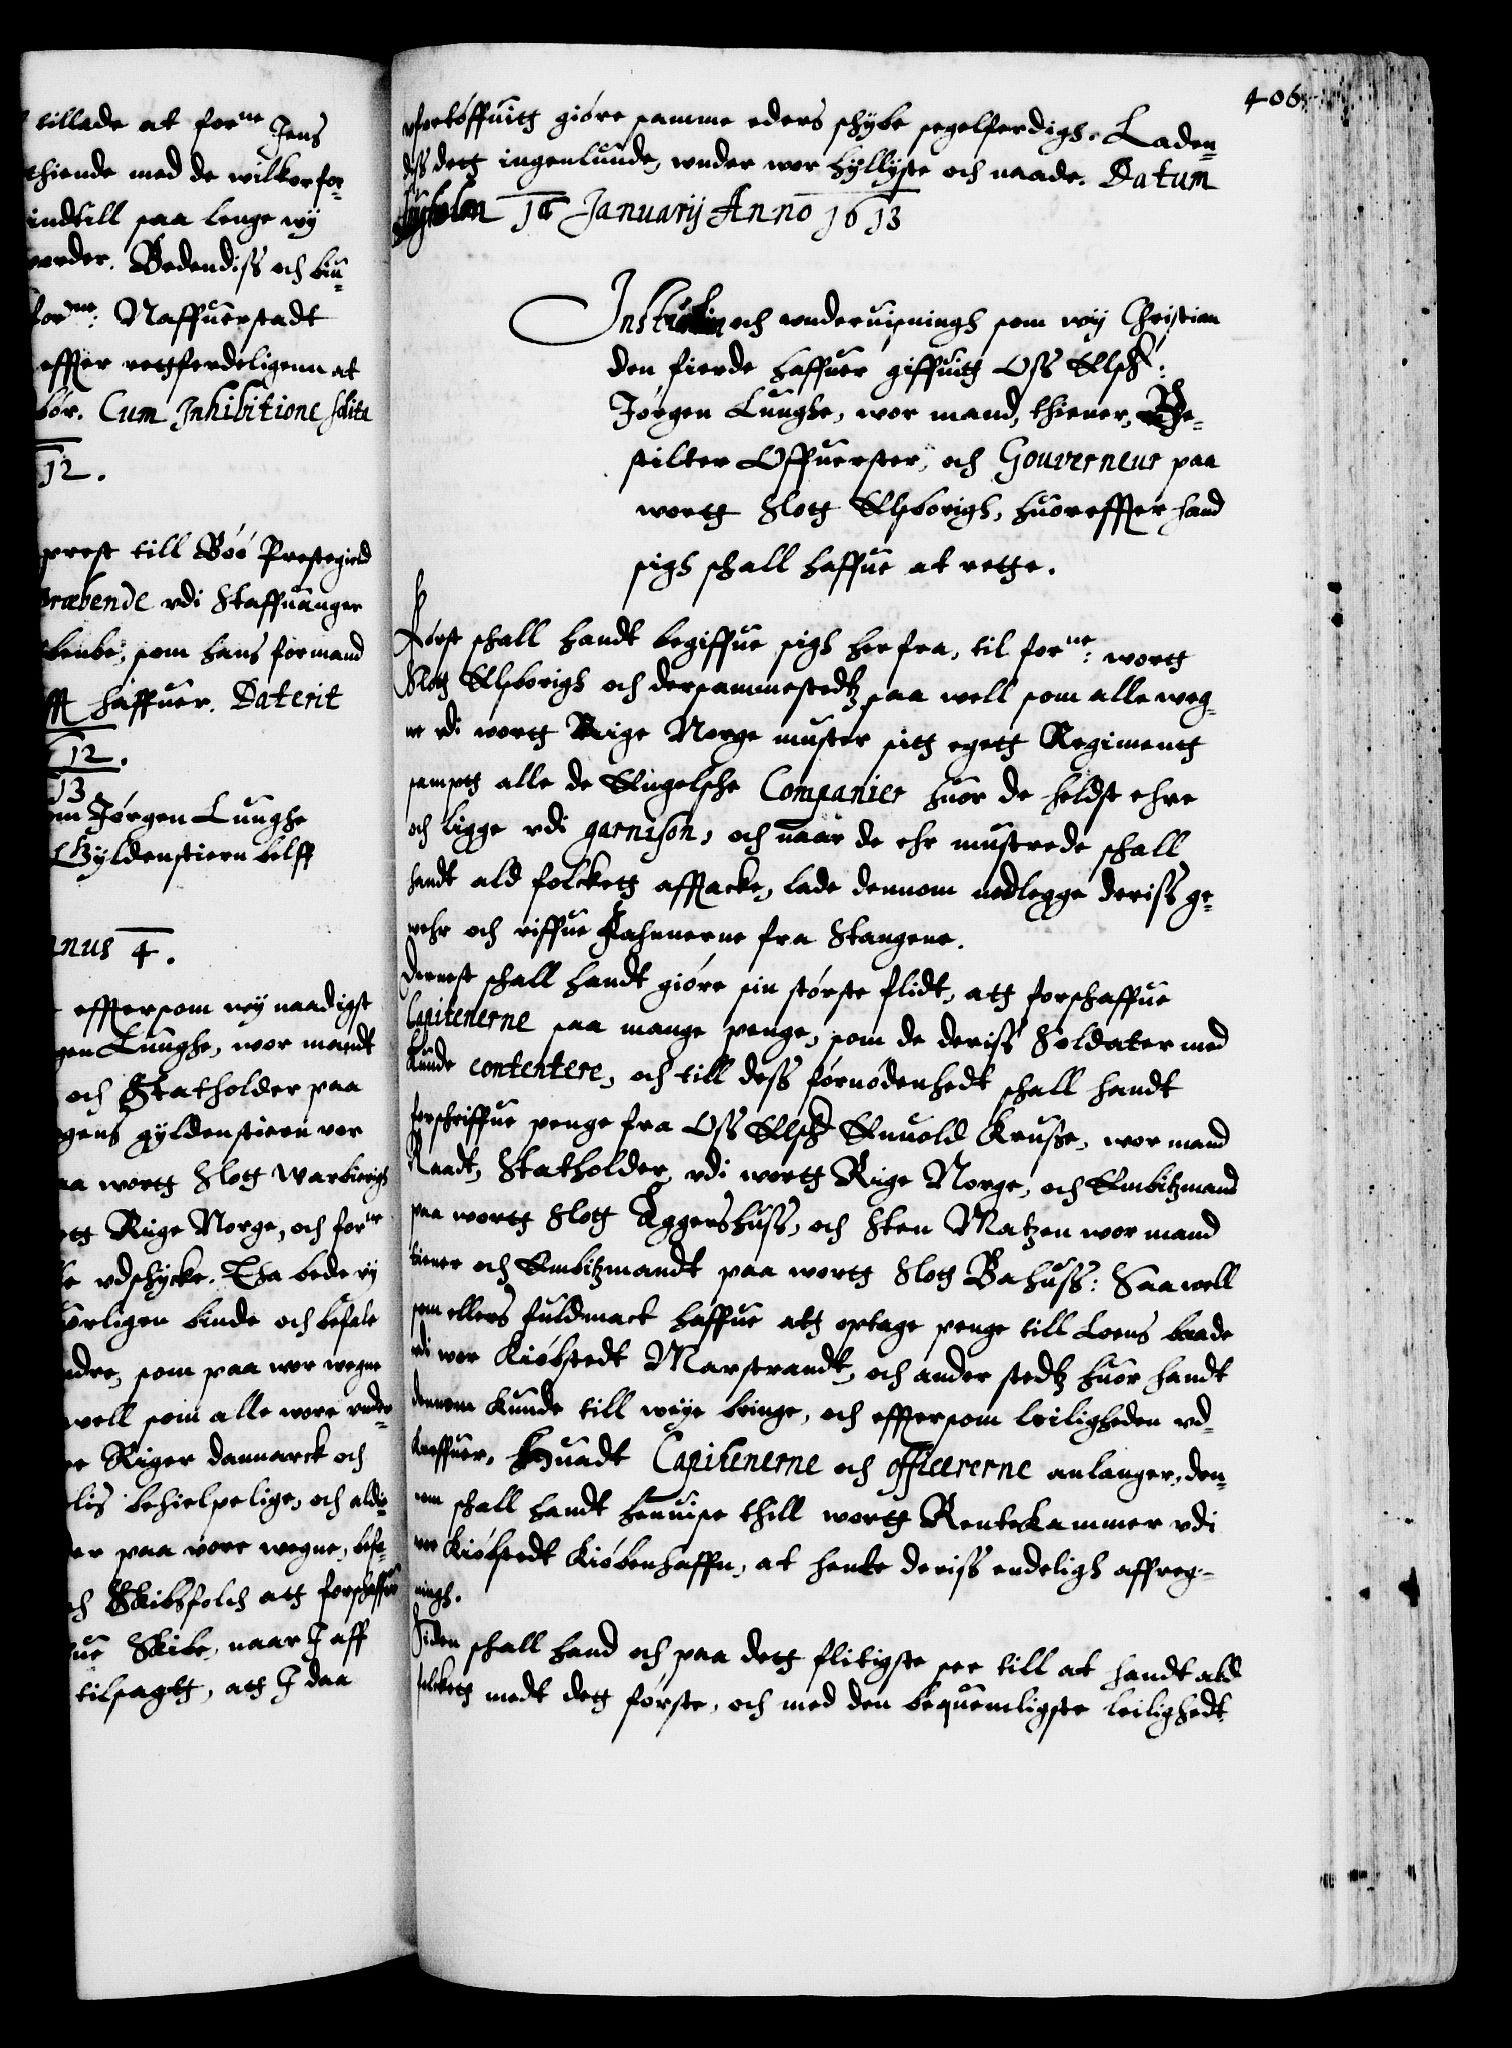 tillade at forne Jens
thiende med de wilkor for-
indtill saa lenge wy
worder. Bedendiss och biu-
forne: Naffuerstadt
effter rettferdeligenn at
bör. Cum Inhibitione solita
12.
prest till Böö Prestegield
Præbende vdi Staffuanger
benbe, som hans formand
fft haffuer. Daterit
12.
13
om Jörgen Lunghe
Gyldenstiern belff
nus 4.
effttersom wy naadigst
gen Lunghe, wor mandt
och Statholder paa
gens gyldenstiern vor
aa wortt Slott Warbierigh
ett Rige Norge, och forne
le vdschycke. Tha bede wy
uorligen binde och befale
ndre, som paa wor wegne
well som alle wore vnder-
re Riger dannarck och
lis behielpelige, och aldt-
er paa vore wegne, befa-
ch Skibsfolch att forschaffue
ue Skibe, naar I aff
tilsagtt, att I daa
406.
vfortöffuitt giöre samme eders schybe segelferdigh. Laden-
diss dett ingenlunde, wnder wor hyllyste och naade. Datum
16 Januarij Anno 1613
Instruction och wnderuisningh som wy Christian
den fierde haffuer giffuitt Oss Elsch:
Jörgen Lunghe, wor mand, thiener, Be-
stilter Offuerster, och Gouverneur paa
wortt Slott Elsborigh, huoreffter hand
sigh schall haffue at rette.
Först schall handt begiffue sigh her fra, til forne: wortt
Slott Elsborigh och dersammestedtz saa well som alle weg-
ne vdi wortt Rige Norge muster sitt egett Regimentt
samptt alle de Engelsche Companier huor de heldst ehre
och ligge vdi garnison, och naar de ehr mustrede schall
handt ald folckett afftacke, lade dennom nedlegge deriss ge-
wehr och riffue Fahnnerne fra Stangene.
Dernest schall handt giöre sin störste flidt, att forschaffue
Capitenerne saa mange penge, som de deriss Soldater med
kunde contentere, och till dess fornödenhedt schall handt
forschriffue penge fra Oss Elsch Enuold Kruse, wor mand
Raadt, Statholder vdi wortt Rige Norge, och Embitzmand
paa wortt Slott Aggershuss, och Sten Matzen wor mand
tiener och Embitzmandt paa wortt Slott Bahuss: Saa well
som ellers fuldmact haffue att optage penge till Loens baade
vdi wor Kiöbstedt Marstrandt, och ander stedtz huor handt
dennom kunde till weye bringe, och efftersom leiligheden vd-
kreffuer. Huadt Capitenerne och officererne anlanger, den-
nom schall handt henuise thill wortt Rentekammer vdi
wor Kiöbstedt Kiöbenhaffn, at hente deriss endeligh affreg-
ningh.
Siden schall hand och paa dett flitigste see till at handt ald
folckett medt dett förste, och med den bequemligste leilighedt